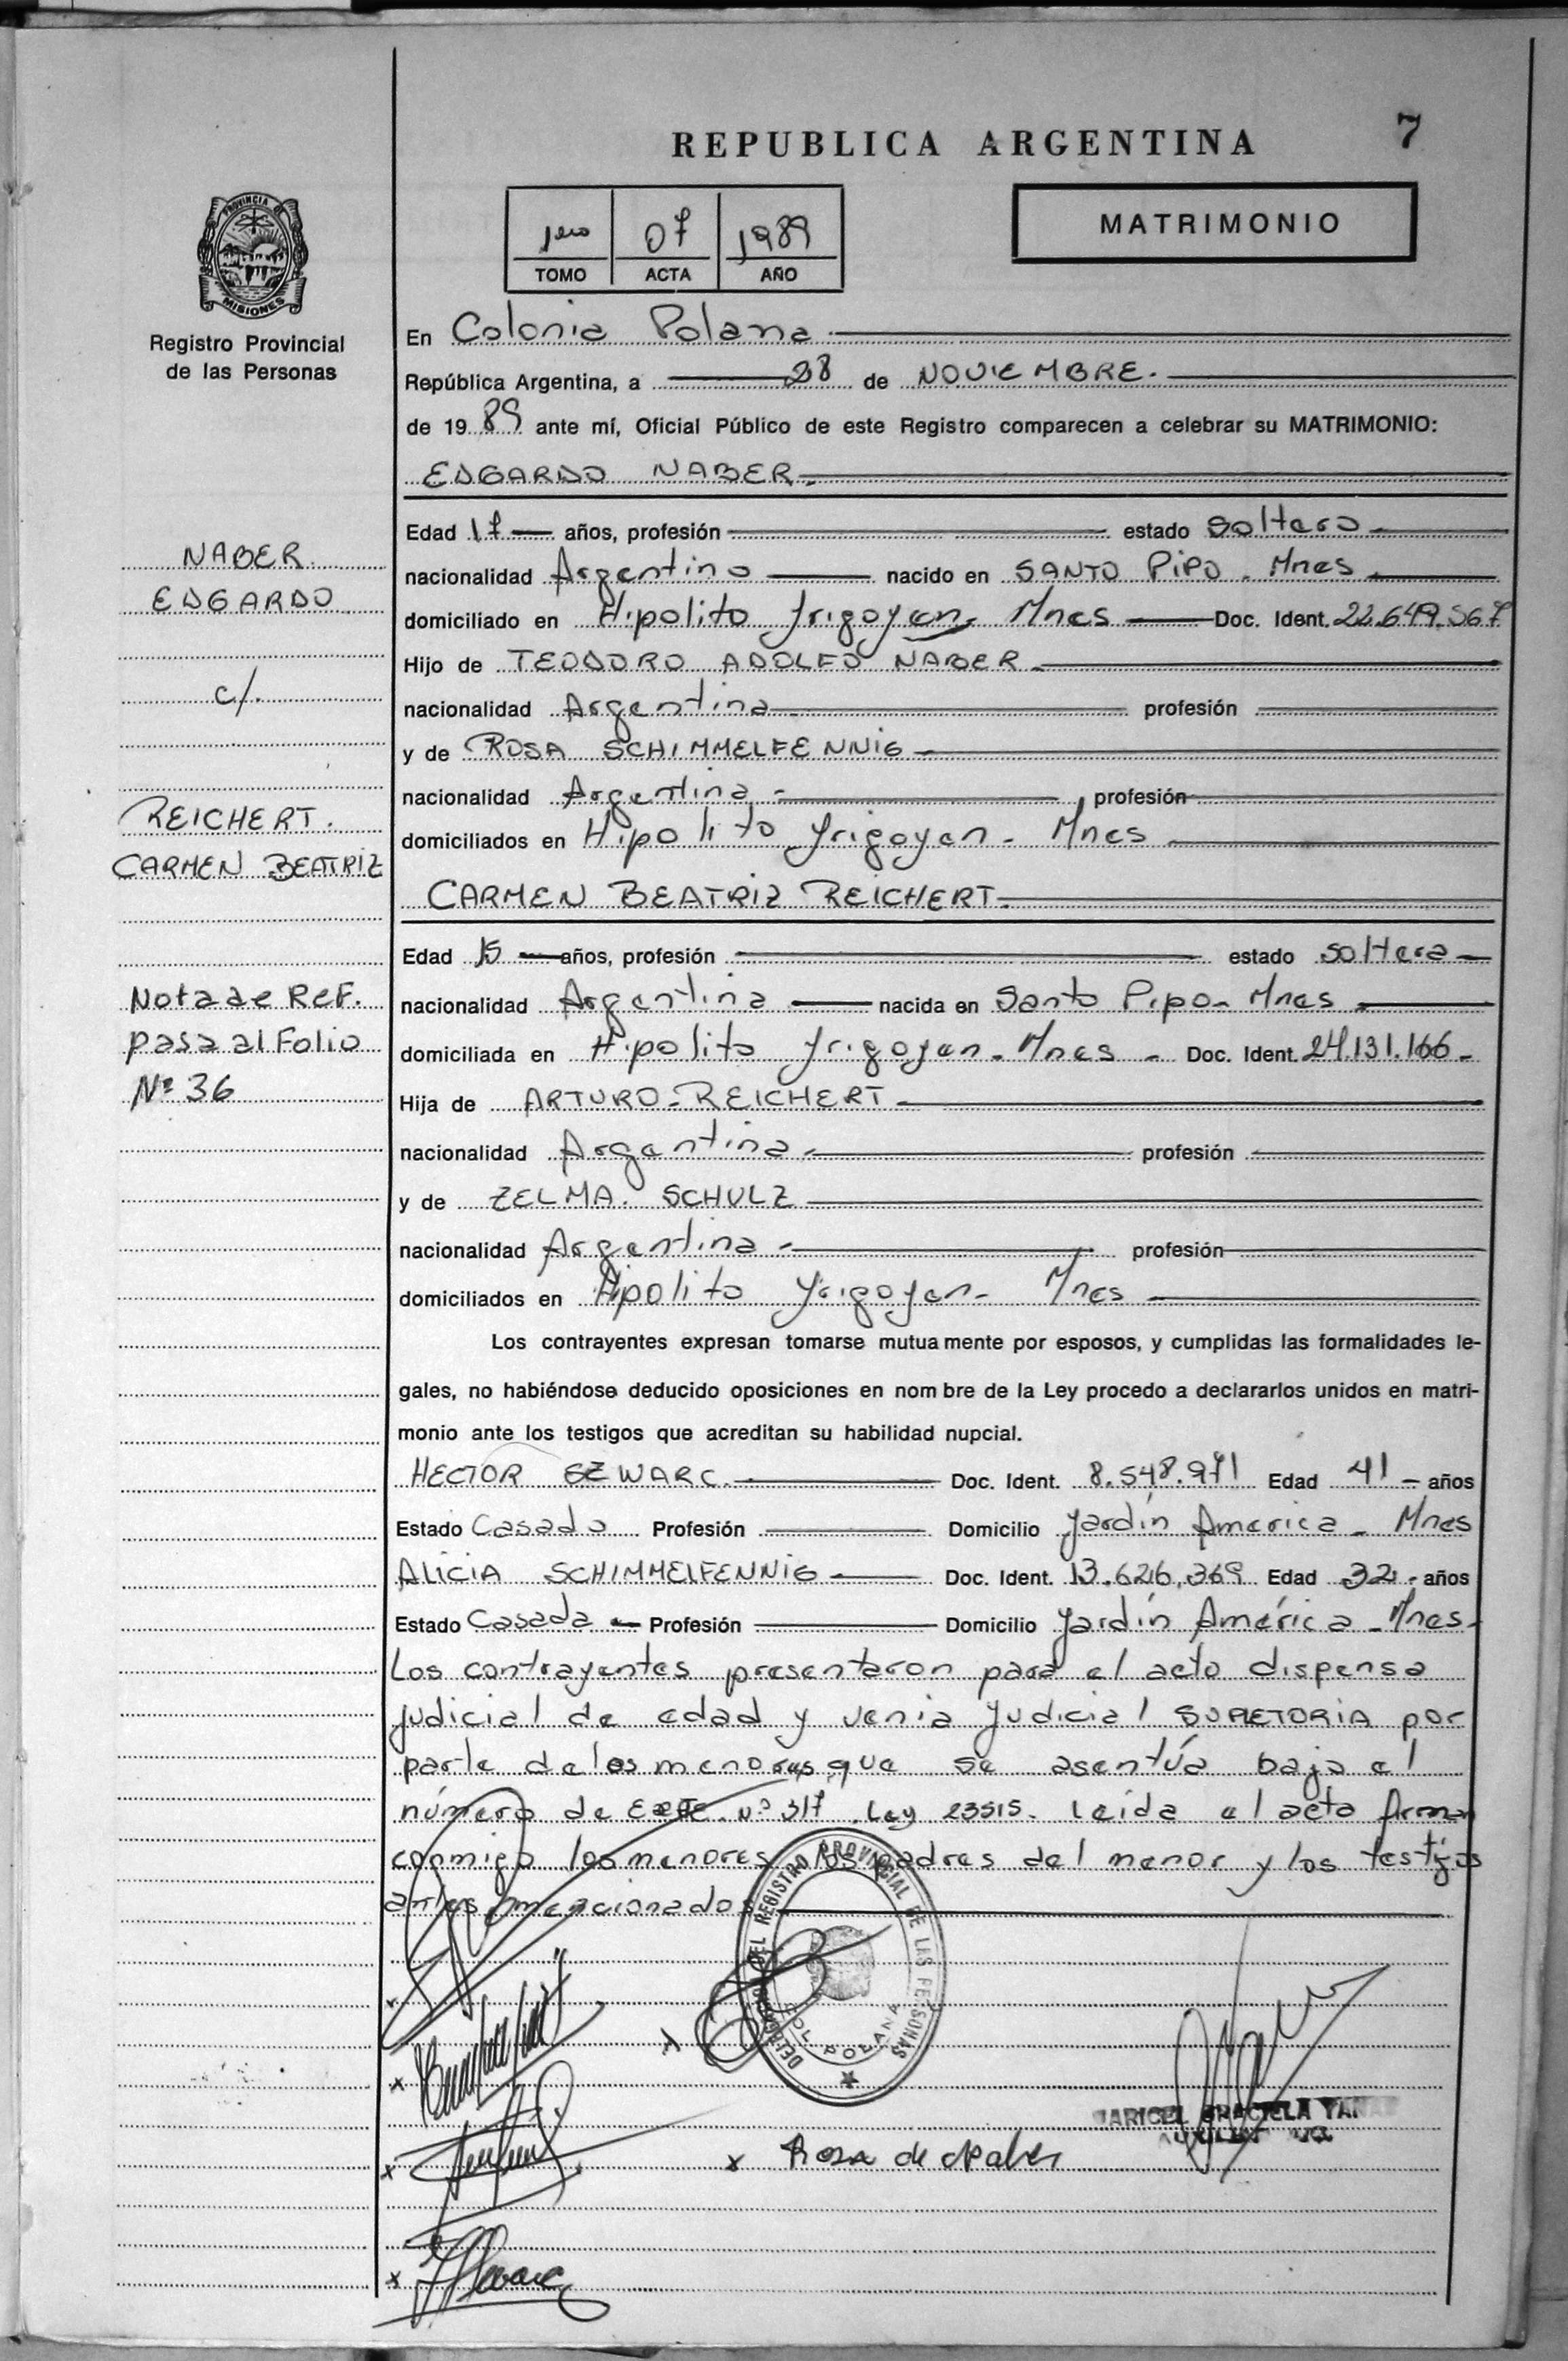 REPUBLICA ARGENTINA
7
PROVINCIA
MISIONES
Registro Provincial
de las Personas
1ero 07 1989
TOMO ACTA AÑO
MATRIMONIO
En Colonia Polana
República Argentina, a 28 de NOVIEMBRE.
de 1989 ante mí, Oficial Público de este Registro comparecen a celebrar su MATRIMONIO:
EDGARDO NABER.
Edad 17 años, profesión estado Soltero
nacionalidad Argentino nacido en SANTO PIPO. Mnes
domiciliado en Hipolito Yrigoyen, Mnes Doc. Ident. 22.649.567
Hijo de TEODORO ADOLFO NABER
nacionalidad Argentina profesión
y de ROSA SCHIMMELFENNIG
nacionalidad Argentina profesión
domiciliados en Hipolito Yrigoyen - Mnes
CARMEN BEATRIZ REICHERT
Edad 15 años, profesión estado Soltera
nacionalidad Argentina nacida en Santo Pipo - Mnes
domiciliada en Hipolito Yrigoyen - Mnes - Doc. Ident. 24.131.166
Hija de ARTURO - REICHERT
nacionalidad Argentina profesión
y de ZELMA. SCHULZ
nacionalidad Argentina profesión
domiciliados en Hipolito Yrigoyen - Mnes
Los contrayentes expresan tomarse mutuamente por esposos, y cumplidas las formalidades le-
gales, no habiéndose deducido oposiciones en nombre de la Ley procedo a declararlos unidos en matri-
monio ante los testigos que acreditan su habilidad nupcial.
HECTOR SZWARC. Doc. Ident. 8.548.971 Edad 41 años
Estado Casado Profesión Domicilio Jardín America - Mnes
ALICIA SCHIMMELFENNIG Doc. Ident. 13.626.369 Edad 32 años
Estado Casada Profesión Domicilio Jardín América - Mnes.
Los contrayentes presentaron para el acto dispensa
judicial de edad y venia judicial SUPLETORIA por
parte de los menores que se asentúa bajo el
número de EXPTE. Nº 317. Ley 23515. Leída el acta firman
conmigo los menores, los padres del menor y los testigos
antes mencionados
NABER.
EDGARDO
c/.
REICHERT.
CARMEN BEATRIZ
Nota de Ref.
pasa al Folio
Nº 36
DELEGACION DEL REGISTRO PROVINCIAL DE LAS PERSONAS
COL. POLANA
Rosa de Naber
GRACIELA